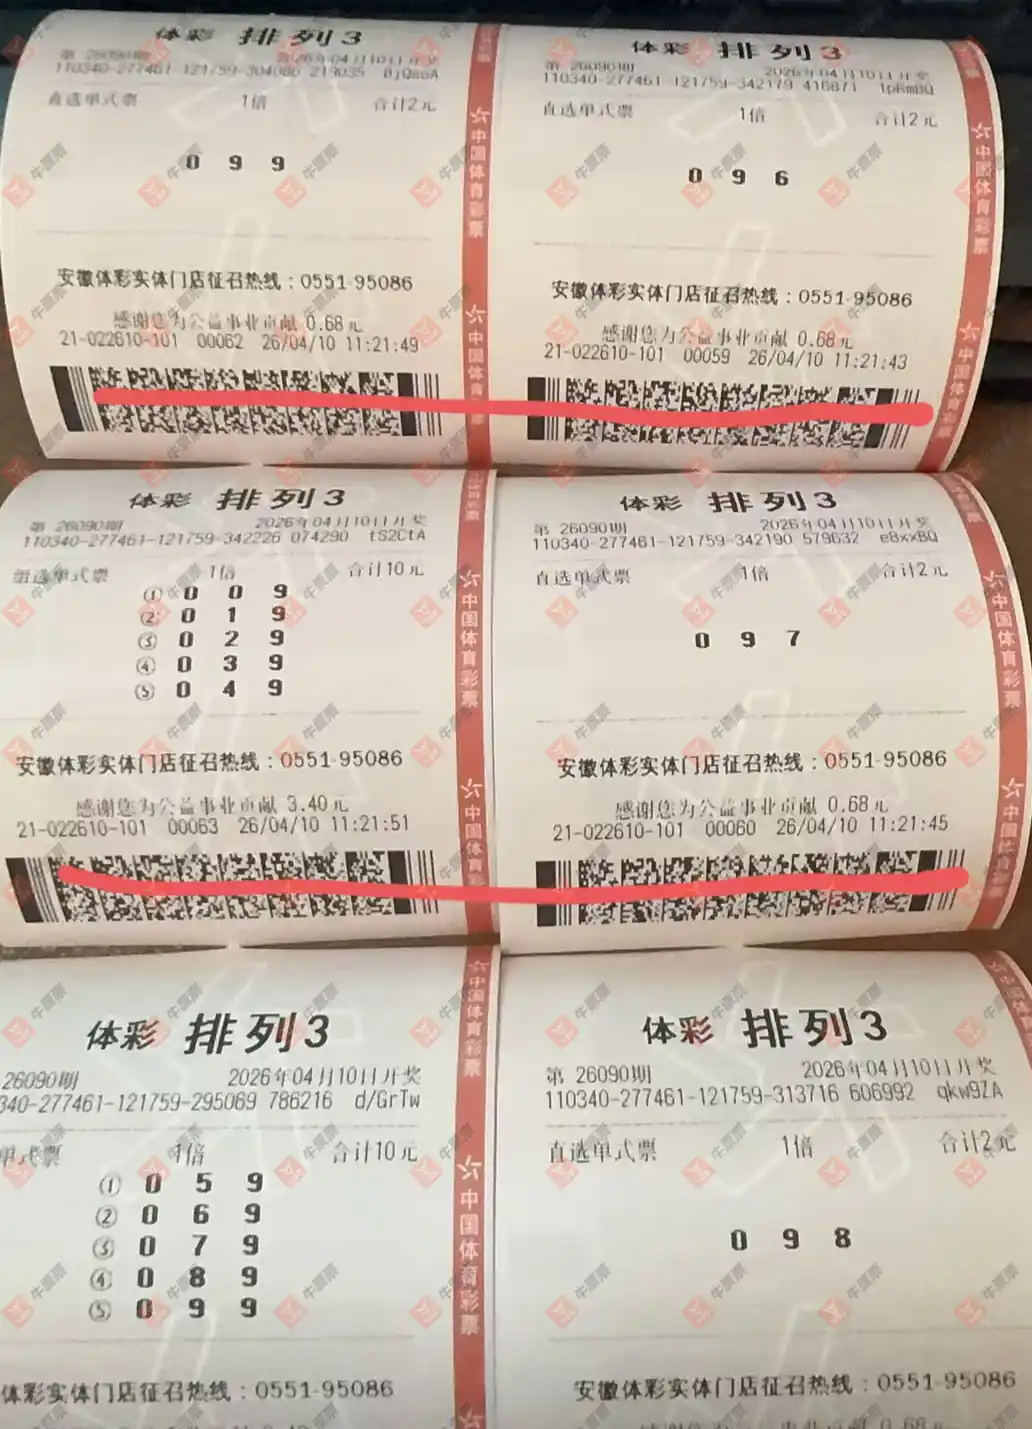 体彩 排列3
第 26090期 2026年04月10日开奖
110340-277461-121759-304086 219035 BjQmoA
直选单式票 1倍 合计2元
0 9 9
安徽体彩实体门店征召热线：0551-95086
感谢您为公益事业贡献 0.68元
21-022610-101 00062 26/04/10 11:21:49
中国体育彩票
体彩 排列3
第 26090期 2026年04月10日开奖
110340-277461-121759-342179 416871 1pRmBQ
直选单式票 1倍 合计2元
0 9 6
安徽体彩实体门店征召热线：0551-95086
感谢您为公益事业贡献 0.68元
21-022610-101 00059 26/04/10 11:21:43
中国体育彩票
体彩 排列3
第 26090期 2026年04月10日开奖
110340-277461-121759-342226 074290 tS2CtA
组选单式票 1倍 合计10元
① 0 0 9
② 0 1 9
③ 0 2 9
④ 0 3 9
⑤ 0 4 9
安徽体彩实体门店征召热线：0551-95086
感谢您为公益事业贡献 3.40元
21-022610-101 00063 26/04/10 11:21:51
中国体育彩票
体彩 排列3
第 26090期 2026年04月10日开奖
110340-277461-121759-342190 579632 e8xxBQ
直选单式票 1倍 合计2元
0 9 7
安徽体彩实体门店征召热线：0551-95086
感谢您为公益事业贡献 0.68元
21-022610-101 00060 26/04/10 11:21:45
中国体育彩票
体彩 排列3
26090期 2026年04月10日开奖
340-277461-121759-295069 786216 d/GrTw
单式票 1倍 合计10元
① 0 5 9
② 0 6 9
③ 0 7 9
④ 0 8 9
⑤ 0 9 9
体彩实体门店征召热线：0551-95086
中国体育彩票
体彩 排列3
第 26090期 2026年04月10日开奖
110340-277461-121759-313716 606992 qkw9ZA
直选单式票 1倍 合计2元
0 9 8
安徽体彩实体门店征召热线：0551-95086
感谢您为公益事业贡献 0.68元